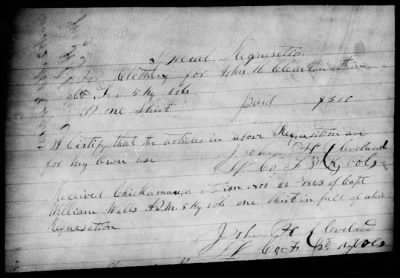 Special Requisition
For Clothing for John H Cleveland
Co F. 5 Ky vols
1) one Shirt paid
I Certify that the articles in above Requisition are
for my own use John H Cleveland
Co F 5 Ky Vols
Received Chickamauga Station Nov 1863 of Capt
William Wells A.Q.M 5 Ky vols one Shirt in full of above
Requisition
John H Cleveland
Co F 5th Ky Vols